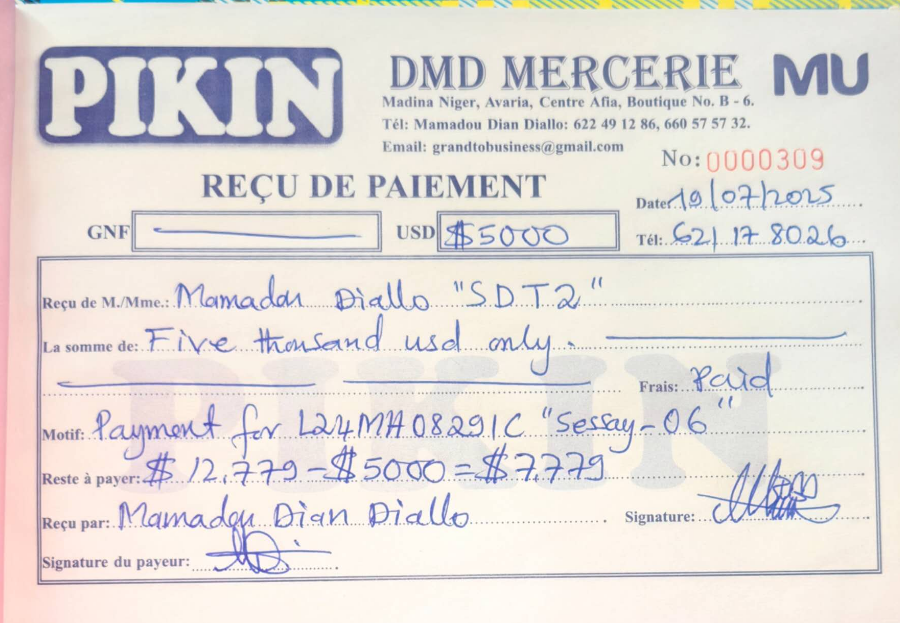 PIKIN
DMD MERCERIE
MU
Madina Niger, Avaria, Centre Afia, Boutique No. B - 6.
Tél: Mamadou Dian Diallo: 622 49 12 86, 660 57 57 32.
Email: grandtobusiness@gmail.com
No: 0000309
REÇU DE PAIEMENT
Date: 19/07/2025
GNF
USD $5000
Tél: 621 17 80 26
Reçu de M./Mme.: Mamadou Diallo "SDT2"
La somme de: Five thousand usd only.
Frais: Paid
Motif: Payment for L24MA08291C "Sessay-06"
Reste à payer: $12,779 - $5000 = $7,779
Reçu par: Mamadou Dian Diallo
Signature:
Signature du payeur:
PIKIN